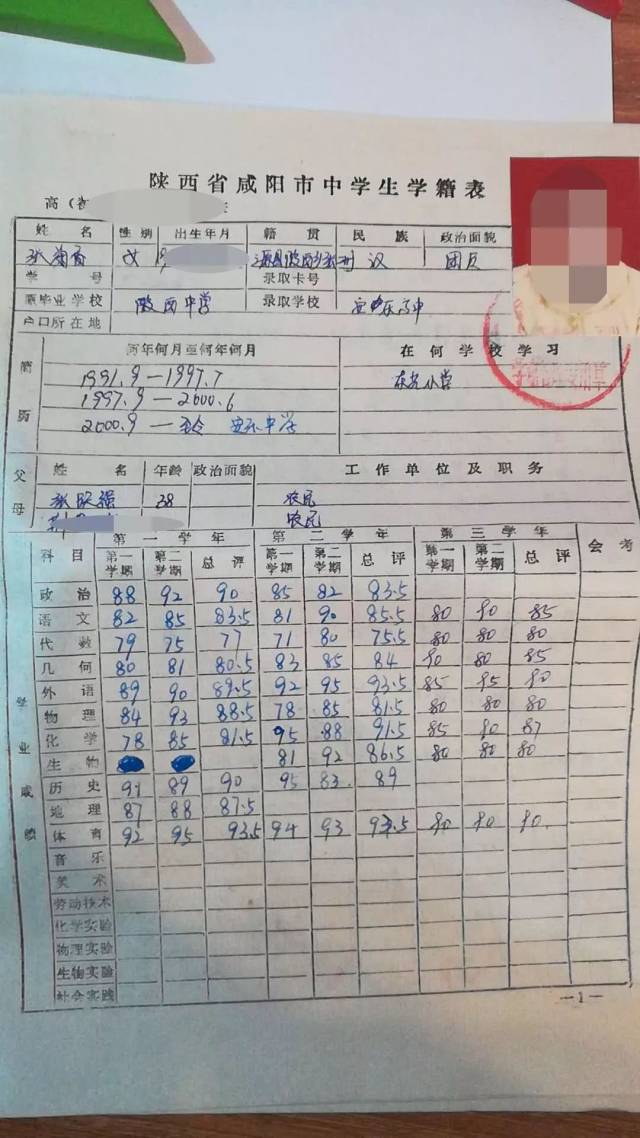 陕西省咸阳市中学生学籍表
高（初
姓 名 性别 出生年月 籍 贯 民 族 政治面貌
张菊香 女 19 汉 团员
学 号 录取卡号
原毕业学校 陂西中学 录取学校 安乐高中
户口所在地
简 历 何年何月至何年何月 在何学校学习
1991.9—1997.7 东谷小学
1997.9—2000.6
2000.9—至今 安乐中学
父 母 姓 名 年龄 政治面貌 工作单位及职务
张 强 38 农民
农民
学 业 成 绩 科 目 第一学年 第二学年 第三学年 会 考
第一学期 第二学期 总 评 第一学期 第二学期 总 评 第一学期 第二学期 总 评
政 治 88 92 90 85 82 83.5
语 文 82 85 83.5 81 90 85.5 80 90 85
代 数 79 75 77 71 80 75.5 80 80 80
几 何 80 81 80.5 83 85 84 90 80 85
外 语 89 90 89.5 92 95 93.5 85 95 90
物 理 84 93 88.5 78 85 81.5 80 80 80
化 学 78 85 81.5 95 88 91.5 85 90 87
生 物 81 92 86.5 80 80 80
历 史 91 89 90 95 83 89
地 理 87 88 87.5
体 育 92 95 93.5 94 93 93.5 90 90 90
音 乐
美 术
劳动技术
化学实验
物理实验
生物实验
社会实践
—1—